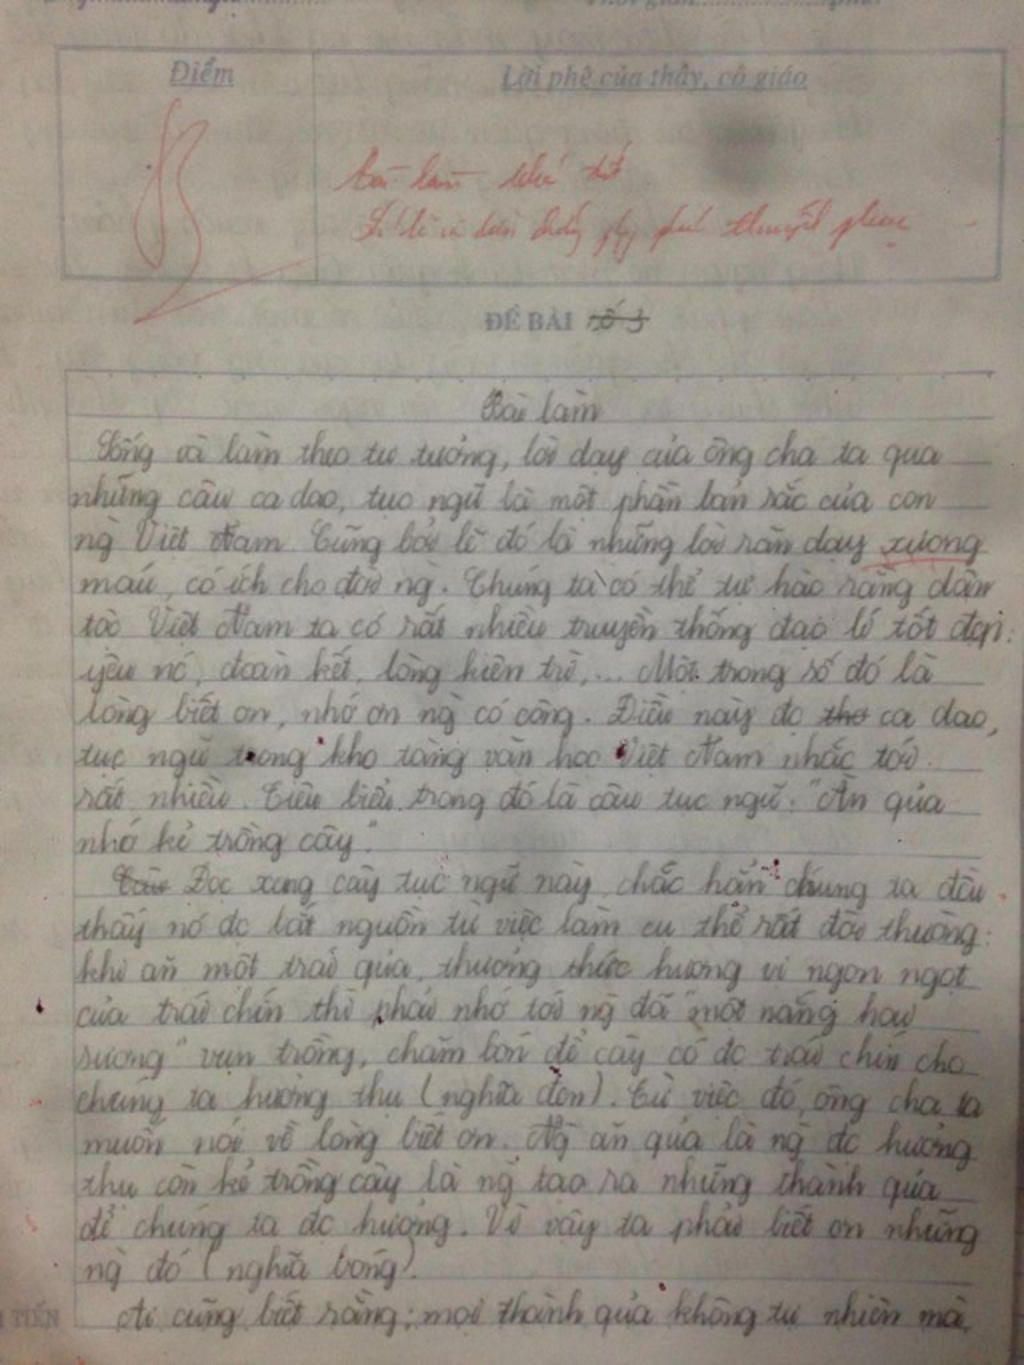 Điểm
Lời phê của thầy, cô giáo
8
Bài làm khá tốt
Lí lẽ và dẫn chứng thuyết phục
ĐỀ BÀI số 3
Bài làm
Sống và làm theo tư tưởng, lời dạy của ông cha ta qua
những câu ca dao, tục ngữ là một phần bản sắc của con
ng` Việt Nam. Cũng bởi lẽ đó là những lời răn dạy xương
máu, có ích cho đời ng`. Chúng ta có thể tự hào rằng dân
tộc Việt Nam ta có rất nhiều truyền thống đạo lí tốt đẹp:
yêu nc, đoàn kết, lòng kiên trì,... Một trong số đó là
lòng biết ơn, nhớ ơn ng` có công. Điều này đc thơ ca dao,
tục ngữ trong kho tàng văn học Việt Nam nhắc tới
rất nhiều. Tiêu biểu trong đó là câu tục ngữ: "Ăn qủa
nhớ kẻ trồng cây".
Câu Đọc xong câu tục ngữ này, chắc hẳn chúng ta đều
thấy nó đc bắt nguồn từ việc làm cụ thể rất đời thường:
khi ăn một trái qủa, thưởng thức hương vị ngon ngọt
của trái chín thì phải nhớ tới ng` đã "một nắng hai
sương" vun trồng, chăm bón để cây có đc trái chín cho
chúng ta hưởng thụ (nghĩa đen). Từ việc đó, ông cha ta
muốn nói về lòng biết ơn. Ng` ăn qủa là ng` đc hưởng
thụ còn kẻ trồng cây là ng` tạo ra những thành qủa
để chúng ta đc hưởng. Vì vậy ta phải biết ơn những
ng` đó (nghĩa bóng).
Ai cũng biết rằng: mọi thành qủa không tự nhiên mà
TIẾN